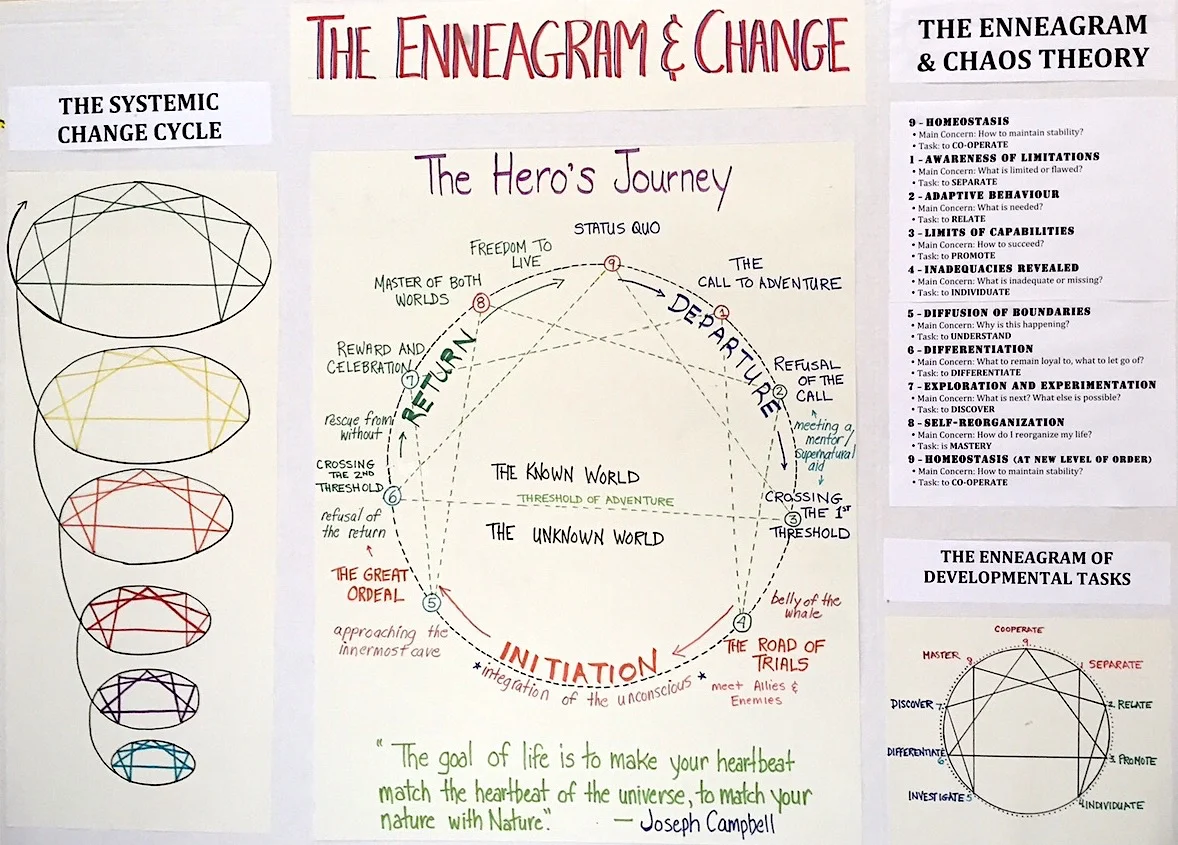 THE ENNEAGRAM & CHANGE
THE SYSTEMIC
CHANGE CYCLE
The Hero's Journey
STATUS QUO
9
THE
CALL TO ADVENTURE
1
DEPARTURE
REFUSAL
OF THE
CALL
2
meeting a
mentor/
supernatural
aid
CROSSING
THE 1ST
THRESHOLD
3
belly of the
whale
4
THE ROAD OF
TRIALS
meet Allies &
Enemies
INITIATION
*integration of the unconscious*
5
THE GREAT
ORDEAL
approaching the
innermost cave
refusal of
the return
6
CROSSING
THE 2ND
THRESHOLD
rescue from
without
RETURN
7
REWARD AND
CELEBRATION
8
MASTER OF BOTH
WORLDS
FREEDOM TO
LIVE
THE KNOWN WORLD
THRESHOLD OF ADVENTURE
THE UNKNOWN WORLD
"The goal of life is to make your heartbeat
match the heartbeat of the universe, to match your
nature with Nature."
— Joseph Campbell
THE ENNEAGRAM
& CHAOS THEORY
9 - HOMEOSTASIS
• Main Concern: How to maintain stability?
• Task: to CO-OPERATE
1 - AWARENESS OF LIMITATIONS
• Main Concern: What is limited or flawed?
• Task: to SEPARATE
2 - ADAPTIVE BEHAVIOUR
• Main Concern: What is needed?
• Task: to RELATE
3 - LIMITS OF CAPABILITIES
• Main Concern: How to succeed?
• Task: to PROMOTE
4 - INADEQUACIES REVEALED
• Main Concern: What is inadequate or missing?
• Task: to INDIVIDUATE
5 - DIFFUSION OF BOUNDARIES
• Main Concern: Why is this happening?
• Task: to UNDERSTAND
6 - DIFFERENTIATION
• Main Concern: What to remain loyal to, what to let go of?
• Task: to DIFFERENTIATE
7 - EXPLORATION AND EXPERIMENTATION
• Main Concern: What is next? What else is possible?
• Task: to DISCOVER
8 - SELF-REORGANIZATION
• Main Concern: How do I reorganize my life?
• Task: is MASTERY
9 - HOMEOSTASIS (AT NEW LEVEL OF ORDER)
• Main Concern: How to maintain stability?
• Task: to CO-OPERATE
THE ENNEAGRAM OF
DEVELOPMENTAL TASKS
COOPERATE
9
1 SEPARATE
2 RELATE
3 PROMOTE
4 INDIVIDUATE
INVESTIGATE 5
DIFFERENTIATE
6
DISCOVER 7
MASTER